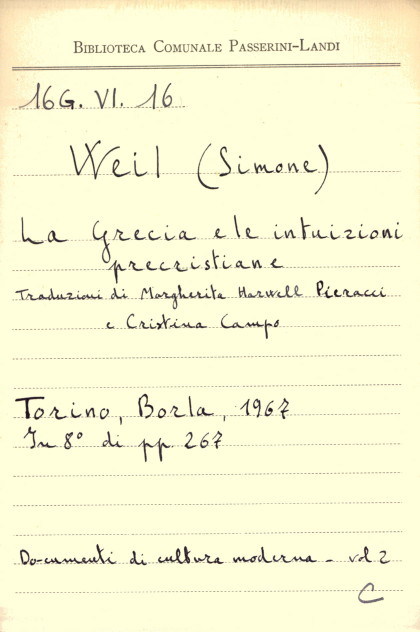 BIBLIOTECA COMUNALE PASSERINI-LANDI
16G. VI. 16
Weil (Simone)
La Grecia e le intuizioni
precristiane
Traduzioni di Margherita Harwell Pieracci
e Cristina Campo
Torino, Borla, 1967
In 8° di pp. 267
Documenti di cultura moderna - vol. 2
C